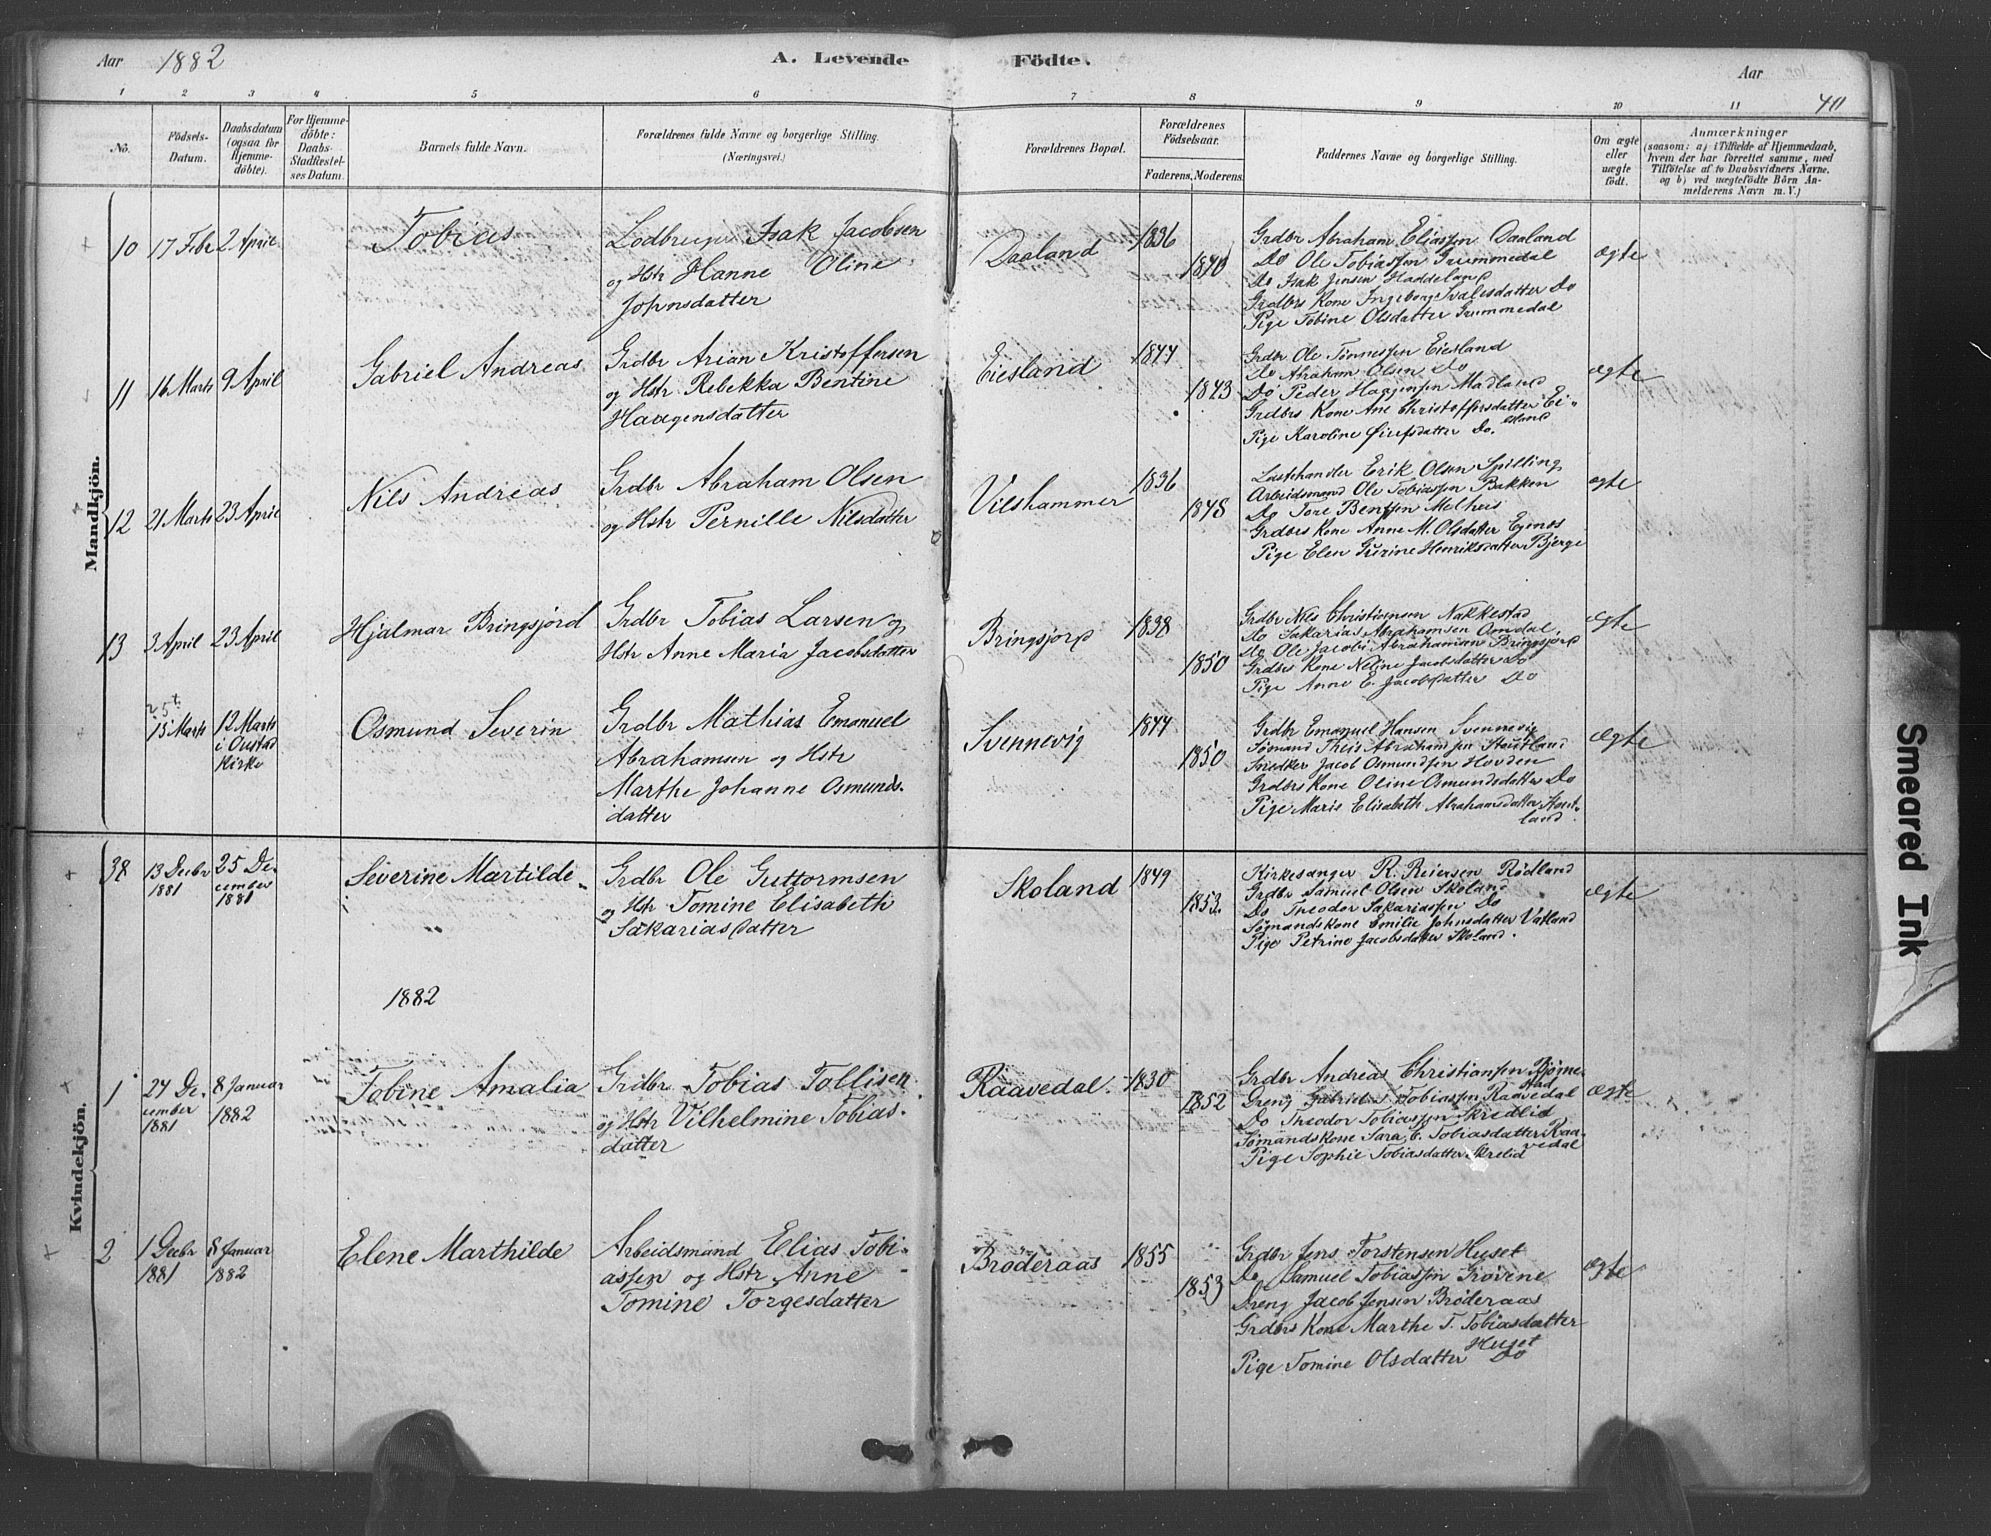 Aar 1882 A. Levende Födte. Aar
1 2 3 4 5 6 7 8 9 10 11 40
No. Födsels-Datum. Daabsdatum (ogsaa for Hjemme-döbte). For Hjemme-döbte: Daabs-Stadfestel-ses Datum. Barnets fulde Navn. Forældrenes fulde Navne og borgerlige Stilling. (Næringsvei.) Forældrenes Bopæl. Forældrenes Födselsaar. Faderens. Moderens. Faddernes Navne og borgerlige Stilling. Om ægte eller uægte födt. Anmærkninger (saasom: a) i Tilfælde af Hjemmedaab, hvem der har forrettet samme, med Tilföielse af to Daabsvidners Navne. og b) ved uægtefödte Börn An-melderens Navn m. V.)
Mandkjön.
10 17 Febr 2 April Tobias
Isak Jacobsen
og Hstr Hanne Oline
Johnsdatter
Daaland 1836 1840
Grdbr Abraham Eliassen Daaland
Do Ole Tobiassen Grummedal
Do Isak Jensen Haddeland
Grdbrs Kone Ingeborg Svalesdatter Do
Pige Tobine Olsdatter Grummedal
ægte
11 16 Marts 9 April Gabriel Andreas
Grdbr Arian Kristoffersen
og Hstr Rebekka Bentine
Haagensdatter
Eiesland 1844 1843
Grdbr Ole Tønnessen Eiesland
Do Abraham Olsen Do
Do Peder Haagensen Madland
Grdbrs Kone Ane Christoffersdatter Ei-
esland
Pige Karoline Do.
ægte
12 21 Marts 23 April Nils Andreas
Grdbr Abraham Olsen
og Hstr Pernille Nilsdatter
Vilshammer 1836 1848
Erik Olsen Spilling
Arbeidsmand Ole Tobiassen Bakken
Do Tore Bentsen Melheis
Grdbrs Kone Anne M. Olsdatter Egenes
Pige Elen Gurine Henriksdatter Bjerge
ægte
13 3 April 23 April Hjalmar Bringsjord
Grdbr Tobias Larsen og
Hstr Anne Maria Jacobsdatter
Bringsjord 1838 1850
Grdbr Nils Christiensen Nakkestad
Do Sakarias Abrahamsen Omdal
Do Ole Jacob Abrahamsen Bringsjord
Grdbrs Kone Neline Jacobsdatter Do
Pige Anne E. Jacobsdatter Do
ægte
15 Marts 12 Marts i Oustad Kirke Osmund Severin
Grdbr Mathias Emanuel
Abrahamsen og Hstr
Marthe Johanne Osmunds-
datter
Svennevig 1844 1850
Grdbr Emanuel Hansen Svennevig
Sømand Theis Abrahamsen Stustland
Snedker Jacob Osmundsen Hovden
Grdbrs Kone Oline Osmundsdatter Do
Pige Marie Elisabeth Abrahamsdatter
land.
Ægte
Kvindekjön.
38 13 Decbr 1881 25 December 1881 Severine Martilde
Grdbr Ole Guttormsen
og Hstr Tomine Elisabeth
Sakariasdatter
Skoland 1849 1853
Kirkesanger R. Reiersen Rødland
Grdbr Samuel Olsen Skoland
Do Theodor Sakariassen Do
Sømandskone Emilie Johnsdatter Vatland
Pige Petrine Jacobsdatter Skoland.
Ægte
1882
1 27 December 1881 8 Januar 1882 Tobine Amalia
Grdbr Tobias Tollisen
og Hstr Vilhelmine Tobias-
datter
Raavedal. 1830 1852
Grdbr Andreas Christiansen Bjøgne-
stad
Dreng Gabriel Tobiassen Raavedal
Do Theodor Tobiassen Skredlid
Sømandskone Sara E. Tobiasdatter Raa-
vedal
Pige Sophie Tobiasdatter Skrelid
Ægte
2 1 Decbr 1881 8 Januar 1882 Elene Marthilde
Arbeidsmand Elias Tobi-
assen og Hstr Anne
Tomine Torgesdatter
Brøderaas 1855 1853
Grdbr Jens Torstensen Huset
Do Samuel Tobiassen Grøvene
Dreng Jacob Jensen Brøderaas
Grdbrs Kone Marthe T. Tobiasdatter
Huset
Pige Tomine Olsdatter Do
ægte
Smeared Ink